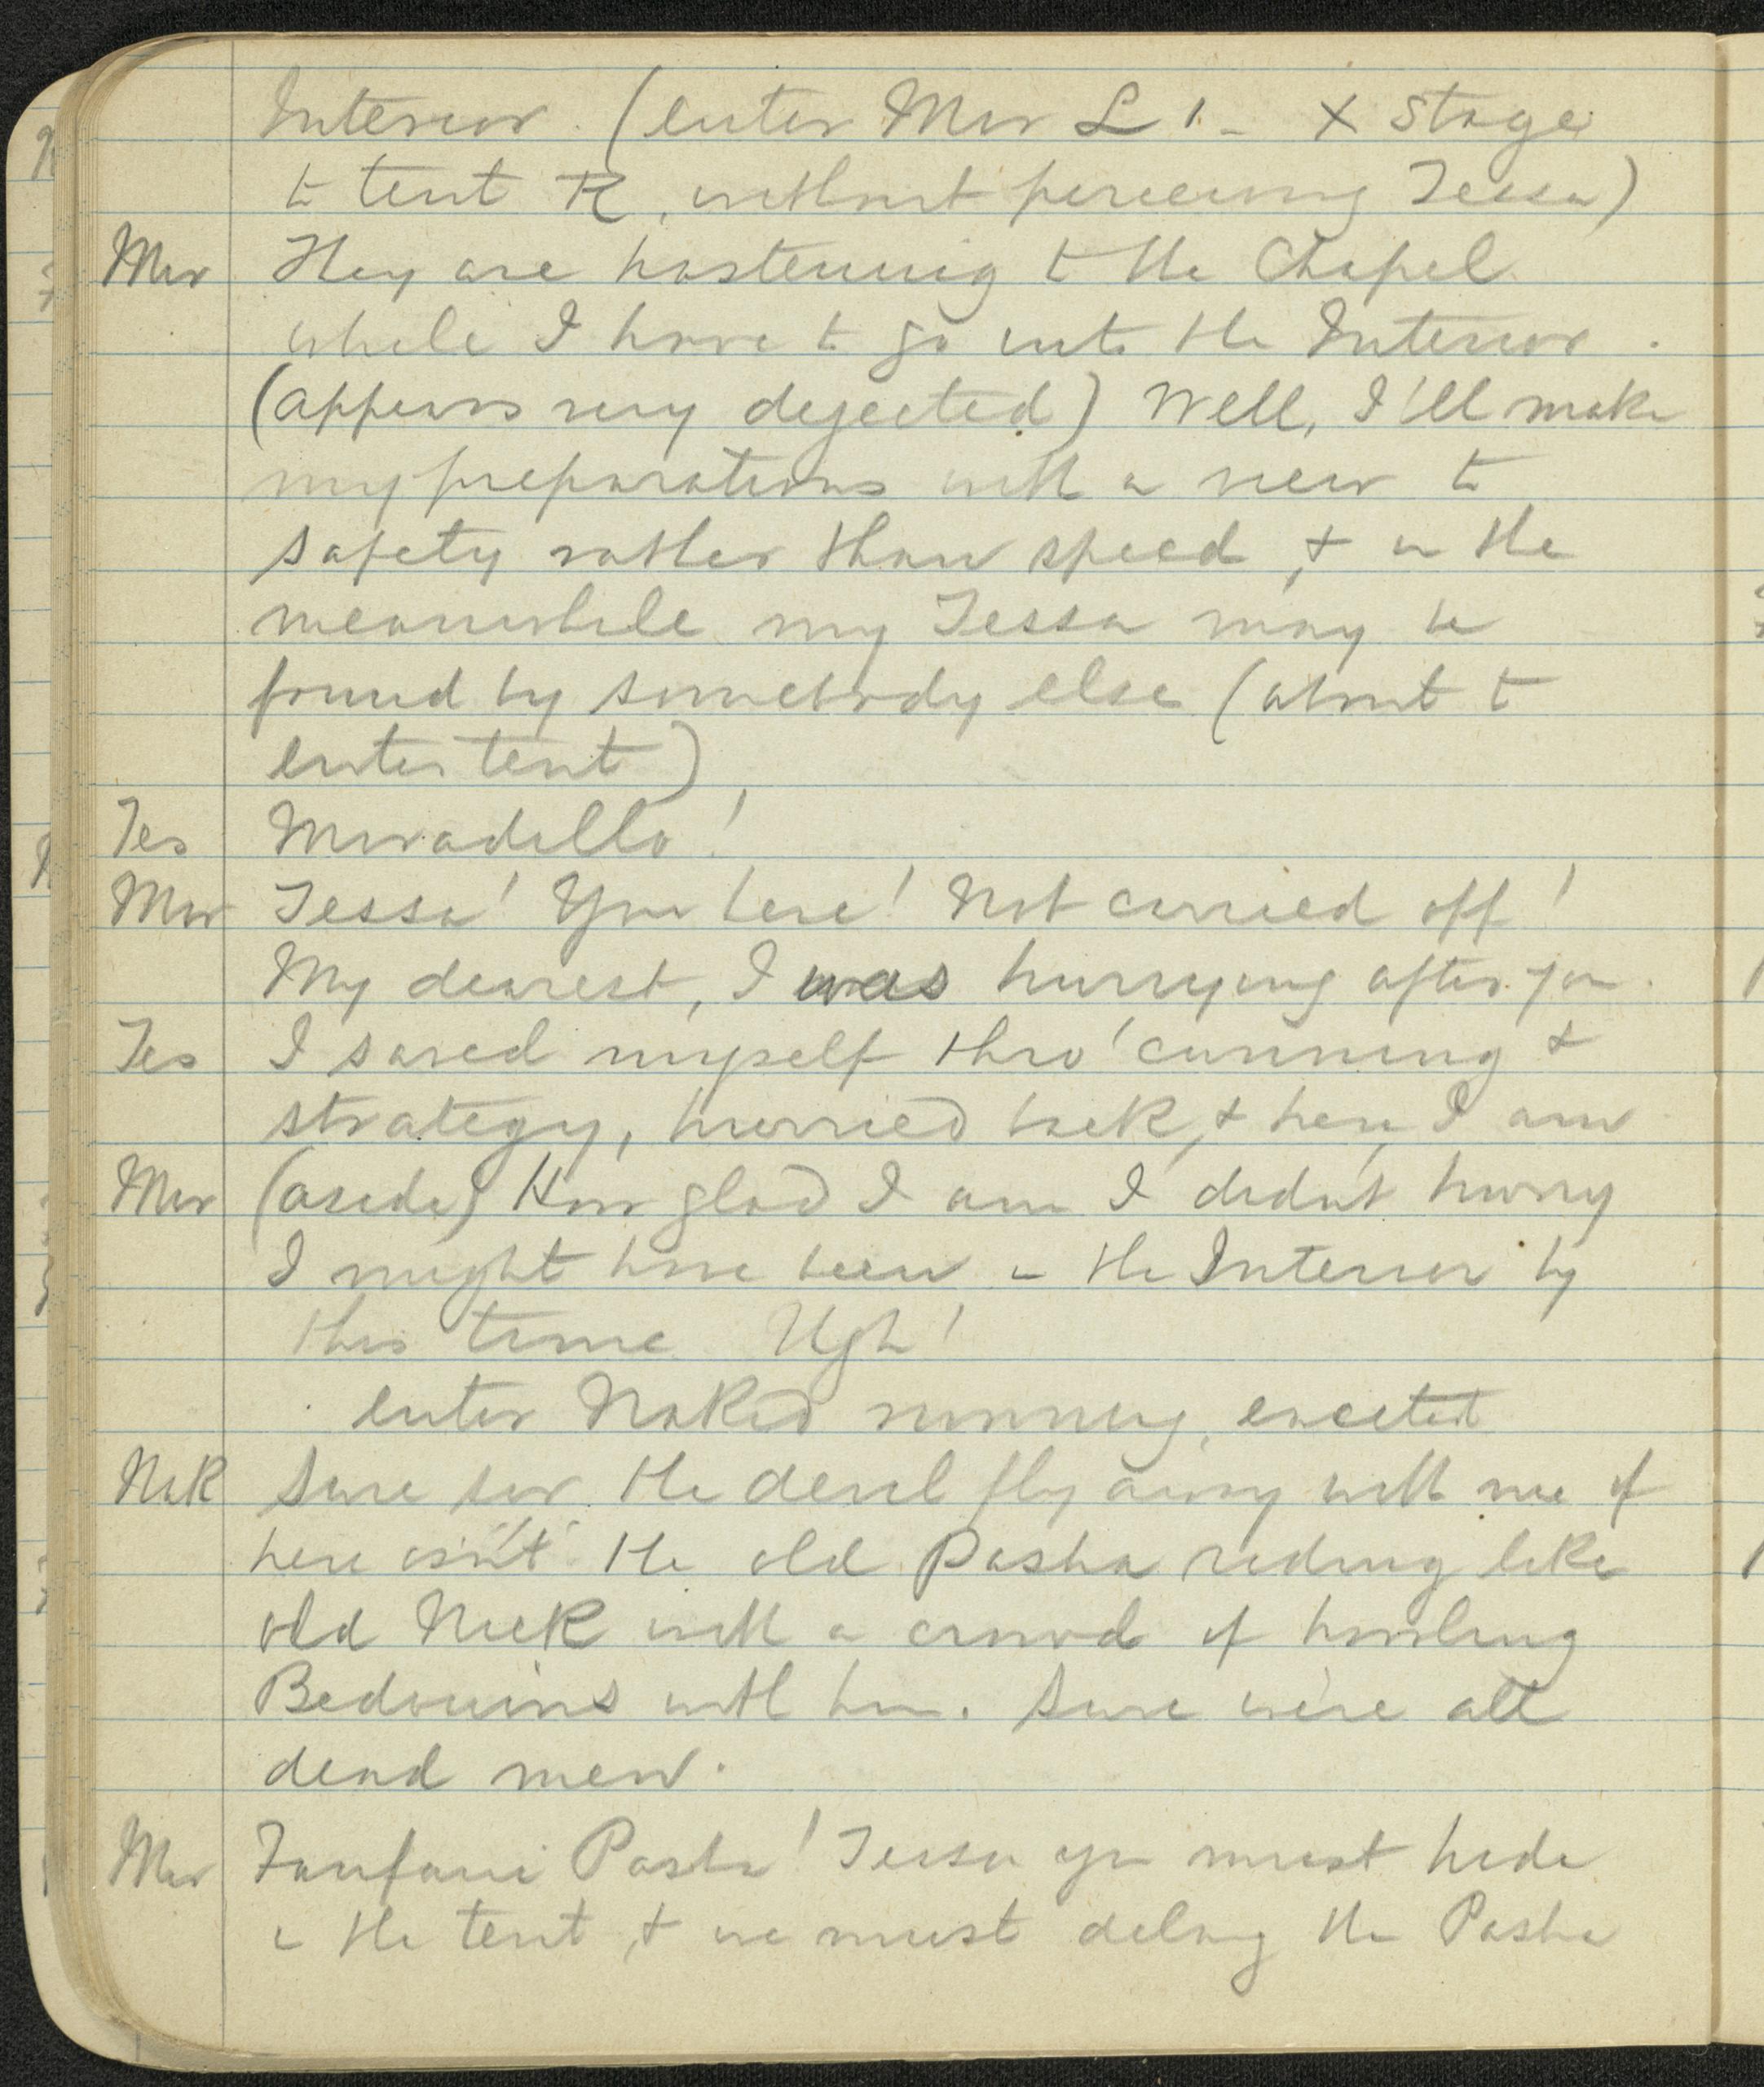 Interior. (enter Mir L 1 - X stage
to tent R, without perceiving Tessa)
Mir They are hastening to the Chapel
while I have to go into the Interior.
(appears very dejected) Well, I'll make
my preparations with a view to
safety rather than speed, & in the
meanwhile my Tessa may be
found by somebody else (about to
enter tent)
Tes Miradillo!
Mir Tessa! You here! Not carried off!
My dearest, I was hurrying after you.
Tes I saved myself thro' cunning &
strategy, hurried back, & here I am
Mir (aside) How glad I am I didn't hurry
I might have been in the Interior by
this time Ugh!
enter Naked running, excited
Nak Sure sir the devil fly away with me if
here isn't the old Pasha riding like
old Nick with a crowd of howling
Bedouins with him. Sure we're all
dead men.
Mir Fanfani Pasha! Tessa you must hide
in the tent, & we must delay the Pasha